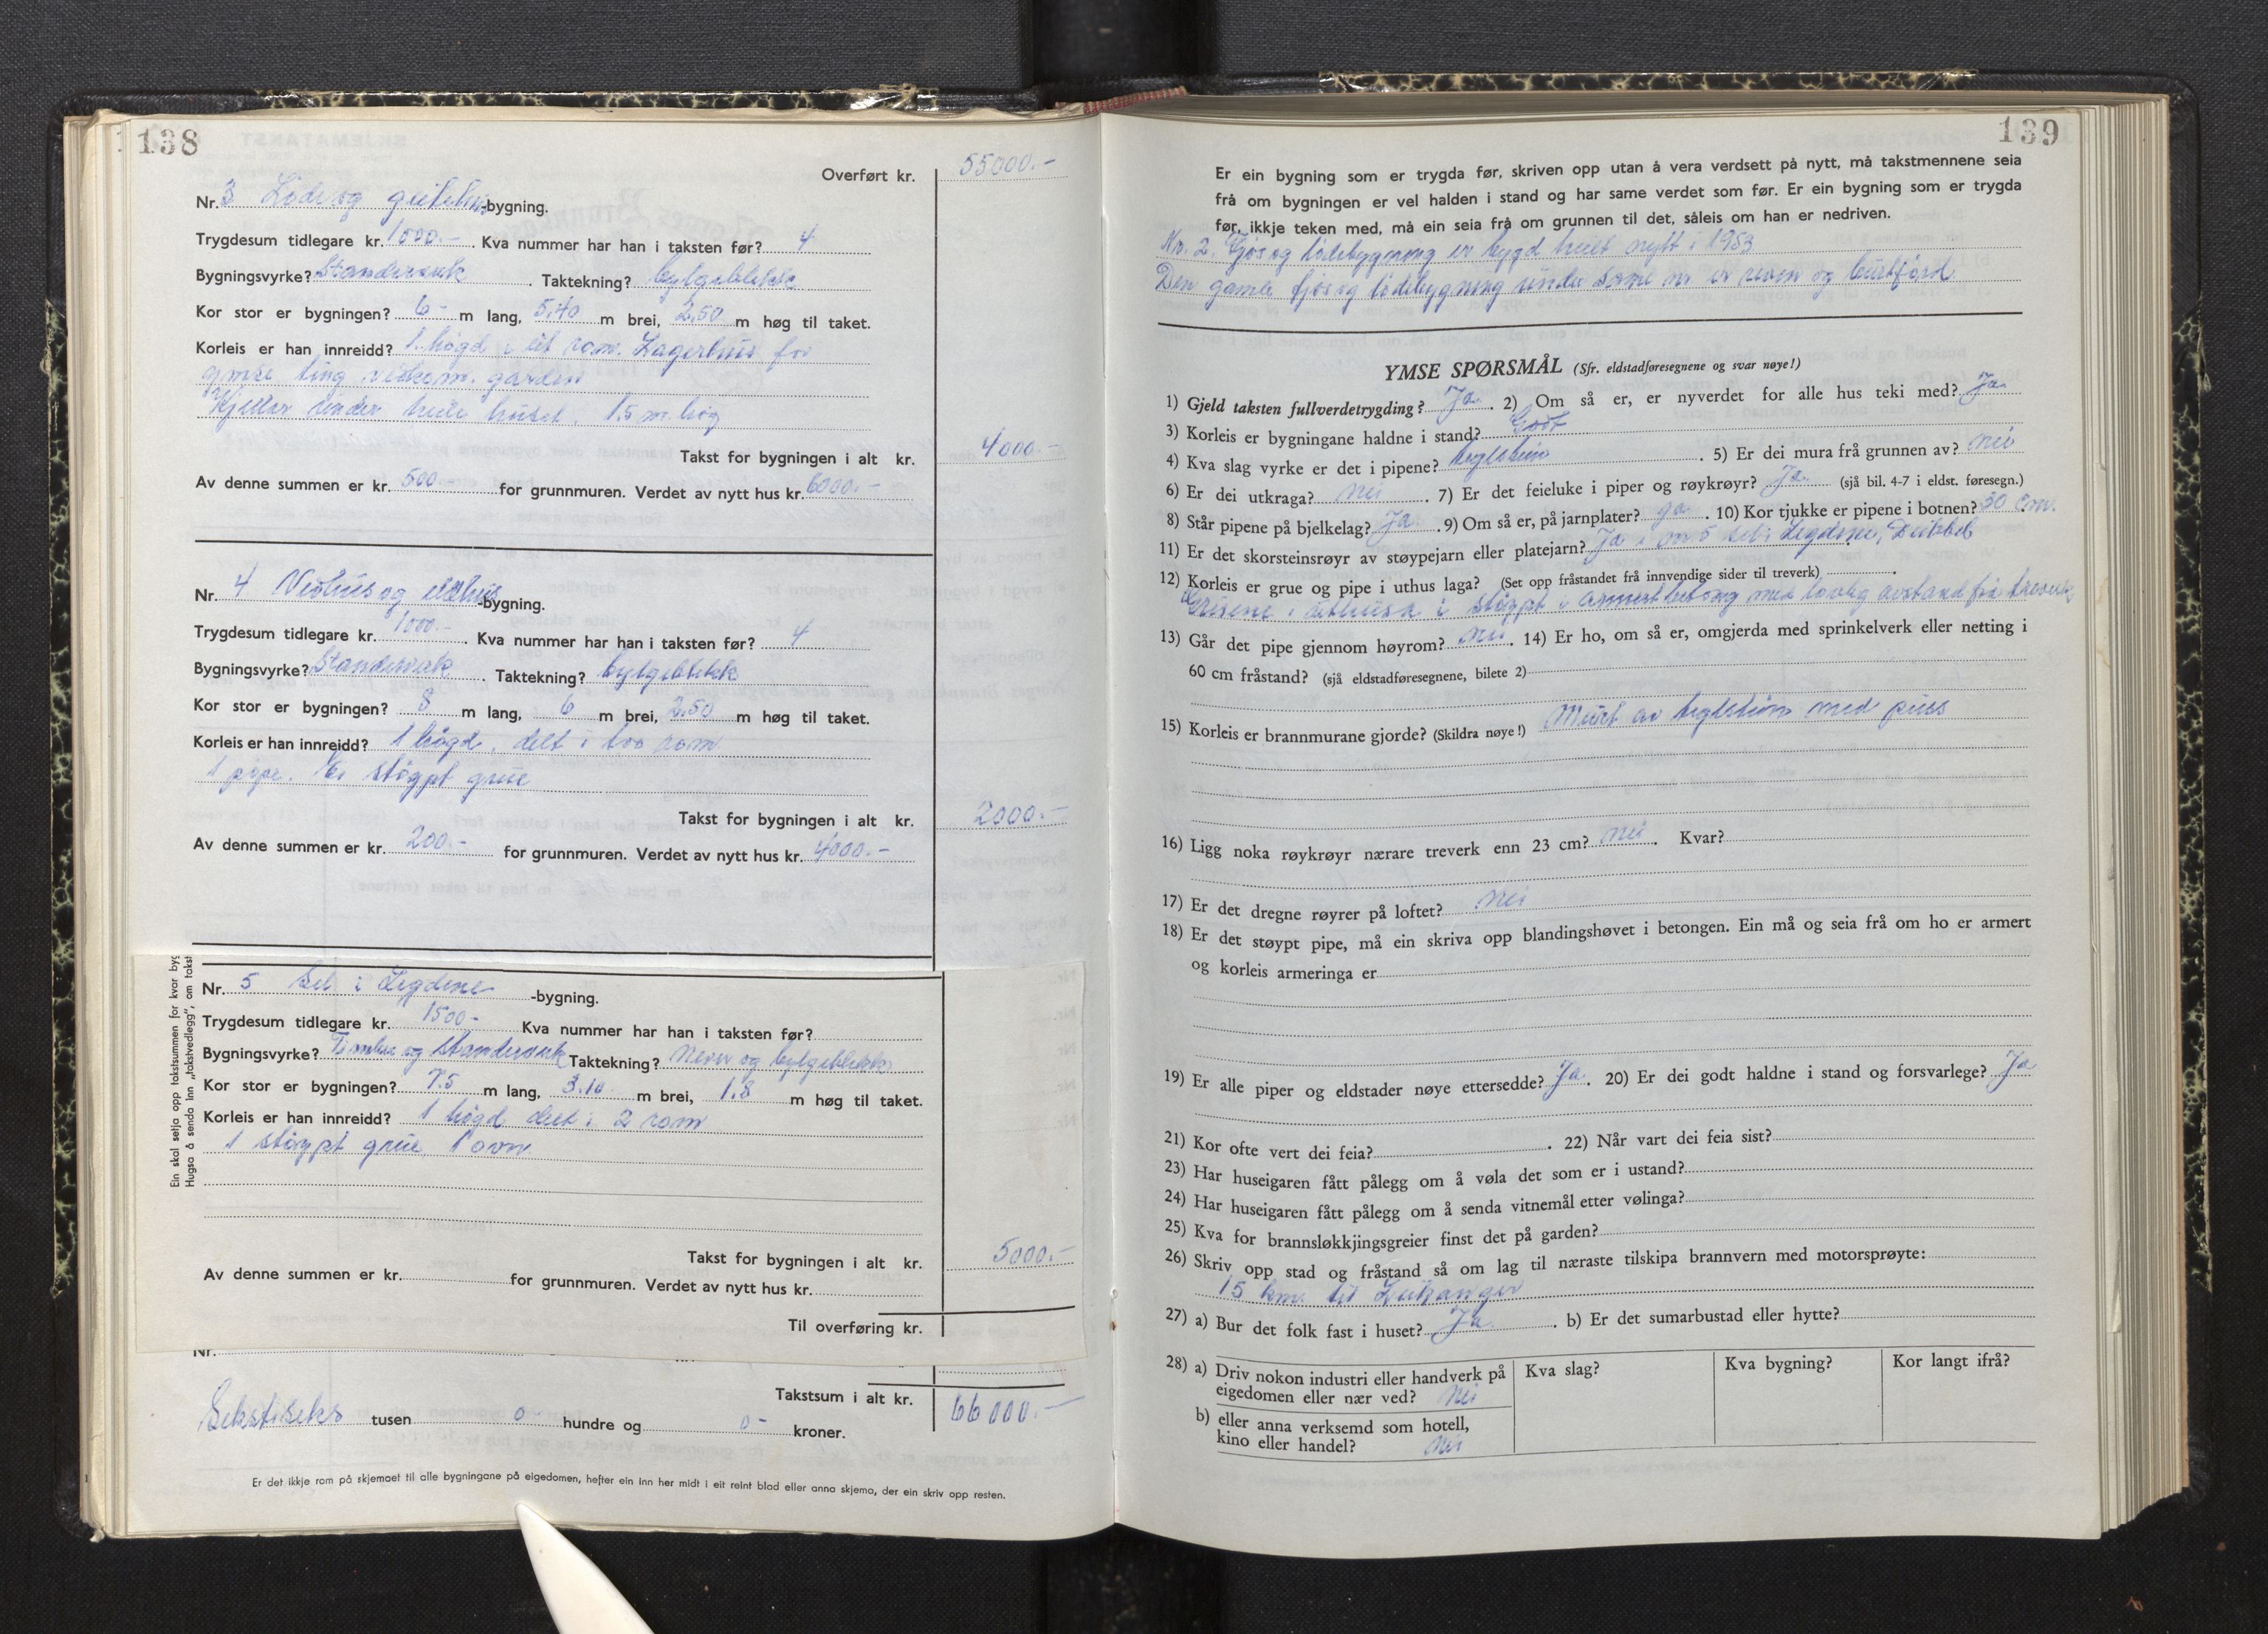 138
Overført kr. 55000.-
Nr. 3 Löde og geitehus-bygning.
Trygdesum tidlegare kr. 1000.- Kva nummer har han i taksten før? 4
Bygningsvyrke? Standerverk. Taktekning? bylgjeblekk
Kor stor er bygningen? 6 - m lang, 5,40 m brei, 2,50 m høg til taket.
Korleis er han innreidd? 1. högd i eit rom. Lagerhus for
ymse ting vedkom. garden
Kjellar under heile huset. 1.5 m. høg
Takst for bygningen i alt kr. 4000.-
Av denne summen er kr. 500- for grunnmuren. Verdet av nytt hus kr. 6000.-
Nr. 4 Vedhus og eldhus-bygning.
Trygdesum tidlegare kr. 1000.- Kva nummer har han i taksten før? 4
Bygningsvyrke? Standerverk. Taktekning? bylgjeblekk
Kor stor er bygningen? 8 m lang, 6 m brei, 2,50 m høg til taket.
Korleis er han innreidd? 1 högd, delt i too rom
1 pipe. Ei støypt grue
Takst for bygningen i alt kr. 2000.-
Av denne summen er kr. 200.- for grunnmuren. Verdet av nytt hus kr. 4000.-
Ein skal setja opp takstsummen for kvar byg
Hugsa å senda inn „takstvedlegg", om takst
Nr. 5 Sel i Legdene -bygning.
Trygdesum tidlegare kr. 1500- Kva nummer har han i taksten før?
Bygningsvyrke? Timber og standerverk Taktekning? Never og bylgjeblekk
Kor stor er bygningen? 7.5 m lang, 3.10 m brei, 1.8 m høg til taket.
Korleis er han innreidd? 1 högd delt i 2 rom
1 støypt grue, 1 ovn
Takst for bygningen i alt kr. 5000.-
Av denne summen er kr. for grunnmuren. Verdet av nytt hus kr.
Til overføring kr.
Nr.
Takstsum i alt kr. 66000.-
Sekstiseks tusen 0- hundre og 0- kroner.
Er det ikkje rom på skjemaet til alle bygningane på eigedomen, hefter ein inn her midt i eit reint blad eller anna skjema, der ein skriv opp resten.
139
Er ein bygning som er trygda før, skriven opp utan å vera verdsett på nytt, må takstmennene seia
frå om bygningen er vel halden i stand og har same verdet som før. Er ein bygning som er trygda
før, ikkje teken med, må ein seia frå om grunnen til det, såleis om han er nedriven.
Nr. 2. Fjøs og lödebygning er bygd heilt nytt i 1953
Den gamle fjøs og lödebygning under same nr er reven og burtförd
YMSE SPØRSMÅL (Sfr. eldstadføresegnene og svar nøye!)
1) Gjeld taksten fullverdetrygding? Ja. 2) Om så er, er nyverdet for alle hus teki med? Ja
3) Korleis er bygningane haldne i stand? Godt
4) Kva slag vyrke er det i pipene? teglstein. 5) Er dei mura frå grunnen av? nei
6) Er dei utkraga? nei. 7) Er det feieluke i piper og røykrøyr? Ja (sjå bil. 4-7 i eldst. føresegn.)
8) Står pipene på bjelkelag? Ja. 9) Om så er, på jarnplater? ja. 10) Kor tjukke er pipene i botnen? 30 cm.
11) Er det skorsteinsrøyr av støypejarn eller platejarn? Ja i nr 5 sel i Legdene, Dubbel
12) Korleis er grue og pipe i uthus laga? (Set opp fråstandet frå innvendige sider til treverk)
Gruene i uthusa i støypt i armert betong med lovleg avstand frå treverk
13) Går det pipe gjennom høyrom? nei. 14) Er ho, om så er, omgjerda med sprinkelverk eller netting i
60 cm fråstand? (sjå eldstadføresegnene, bilete 2)
15) Korleis er brannmurane gjorde? (Skildra nøye!) Murt av teglstein med puss
16) Ligg noka røykrøyr nærare treverk enn 23 cm? nei. Kvar?
17) Er det dregne røyrer på loftet? nei
18) Er det støypt pipe, må ein skriva opp blandingshøvet i betongen. Ein må og seia frå om ho er armert
og korleis armeringa er
19) Er alle piper og eldstader nøye ettersedde? Ja. 20) Er dei godt haldne i stand og forsvarlege? Ja
21) Kor ofte vert dei feia?. 22) Når vart dei feia sist?
23) Har huseigaren fått pålegg om å vøla det som er i ustand?
24) Har huseigaren fått pålegg om å senda vitnemål etter vølinga?
25) Kva for brannsløkkjingsgreier finst det på garden?
26) Skriv opp stad og fråstand så om lag til næraste tilskipa brannvern med motorsprøyte:
15 km. til Leikanger
27) a) Bur det folk fast i huset? Ja. b) Er det sumarbustad eller hytte?
28) a) Driv nokon industri eller handverk på eigedomen eller nær ved? nei
Kva slag? Kva bygning? Kor langt ifrå?
b) eller anna verksemd som hotell, kino eller handel? nei